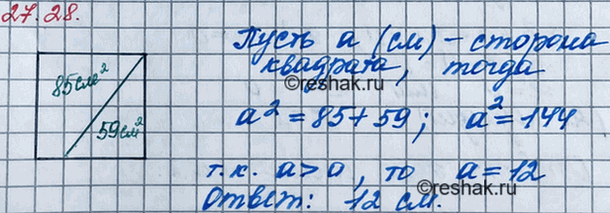 27.28.
85см²
59см²
Пусть a (см) – сторона
квадрата, тогда
©reshak.ru
a² = 85 + 59 ; a² = 144
т.к. a > a, то a = 12
Ответ: 12 см.
©reshak.ru